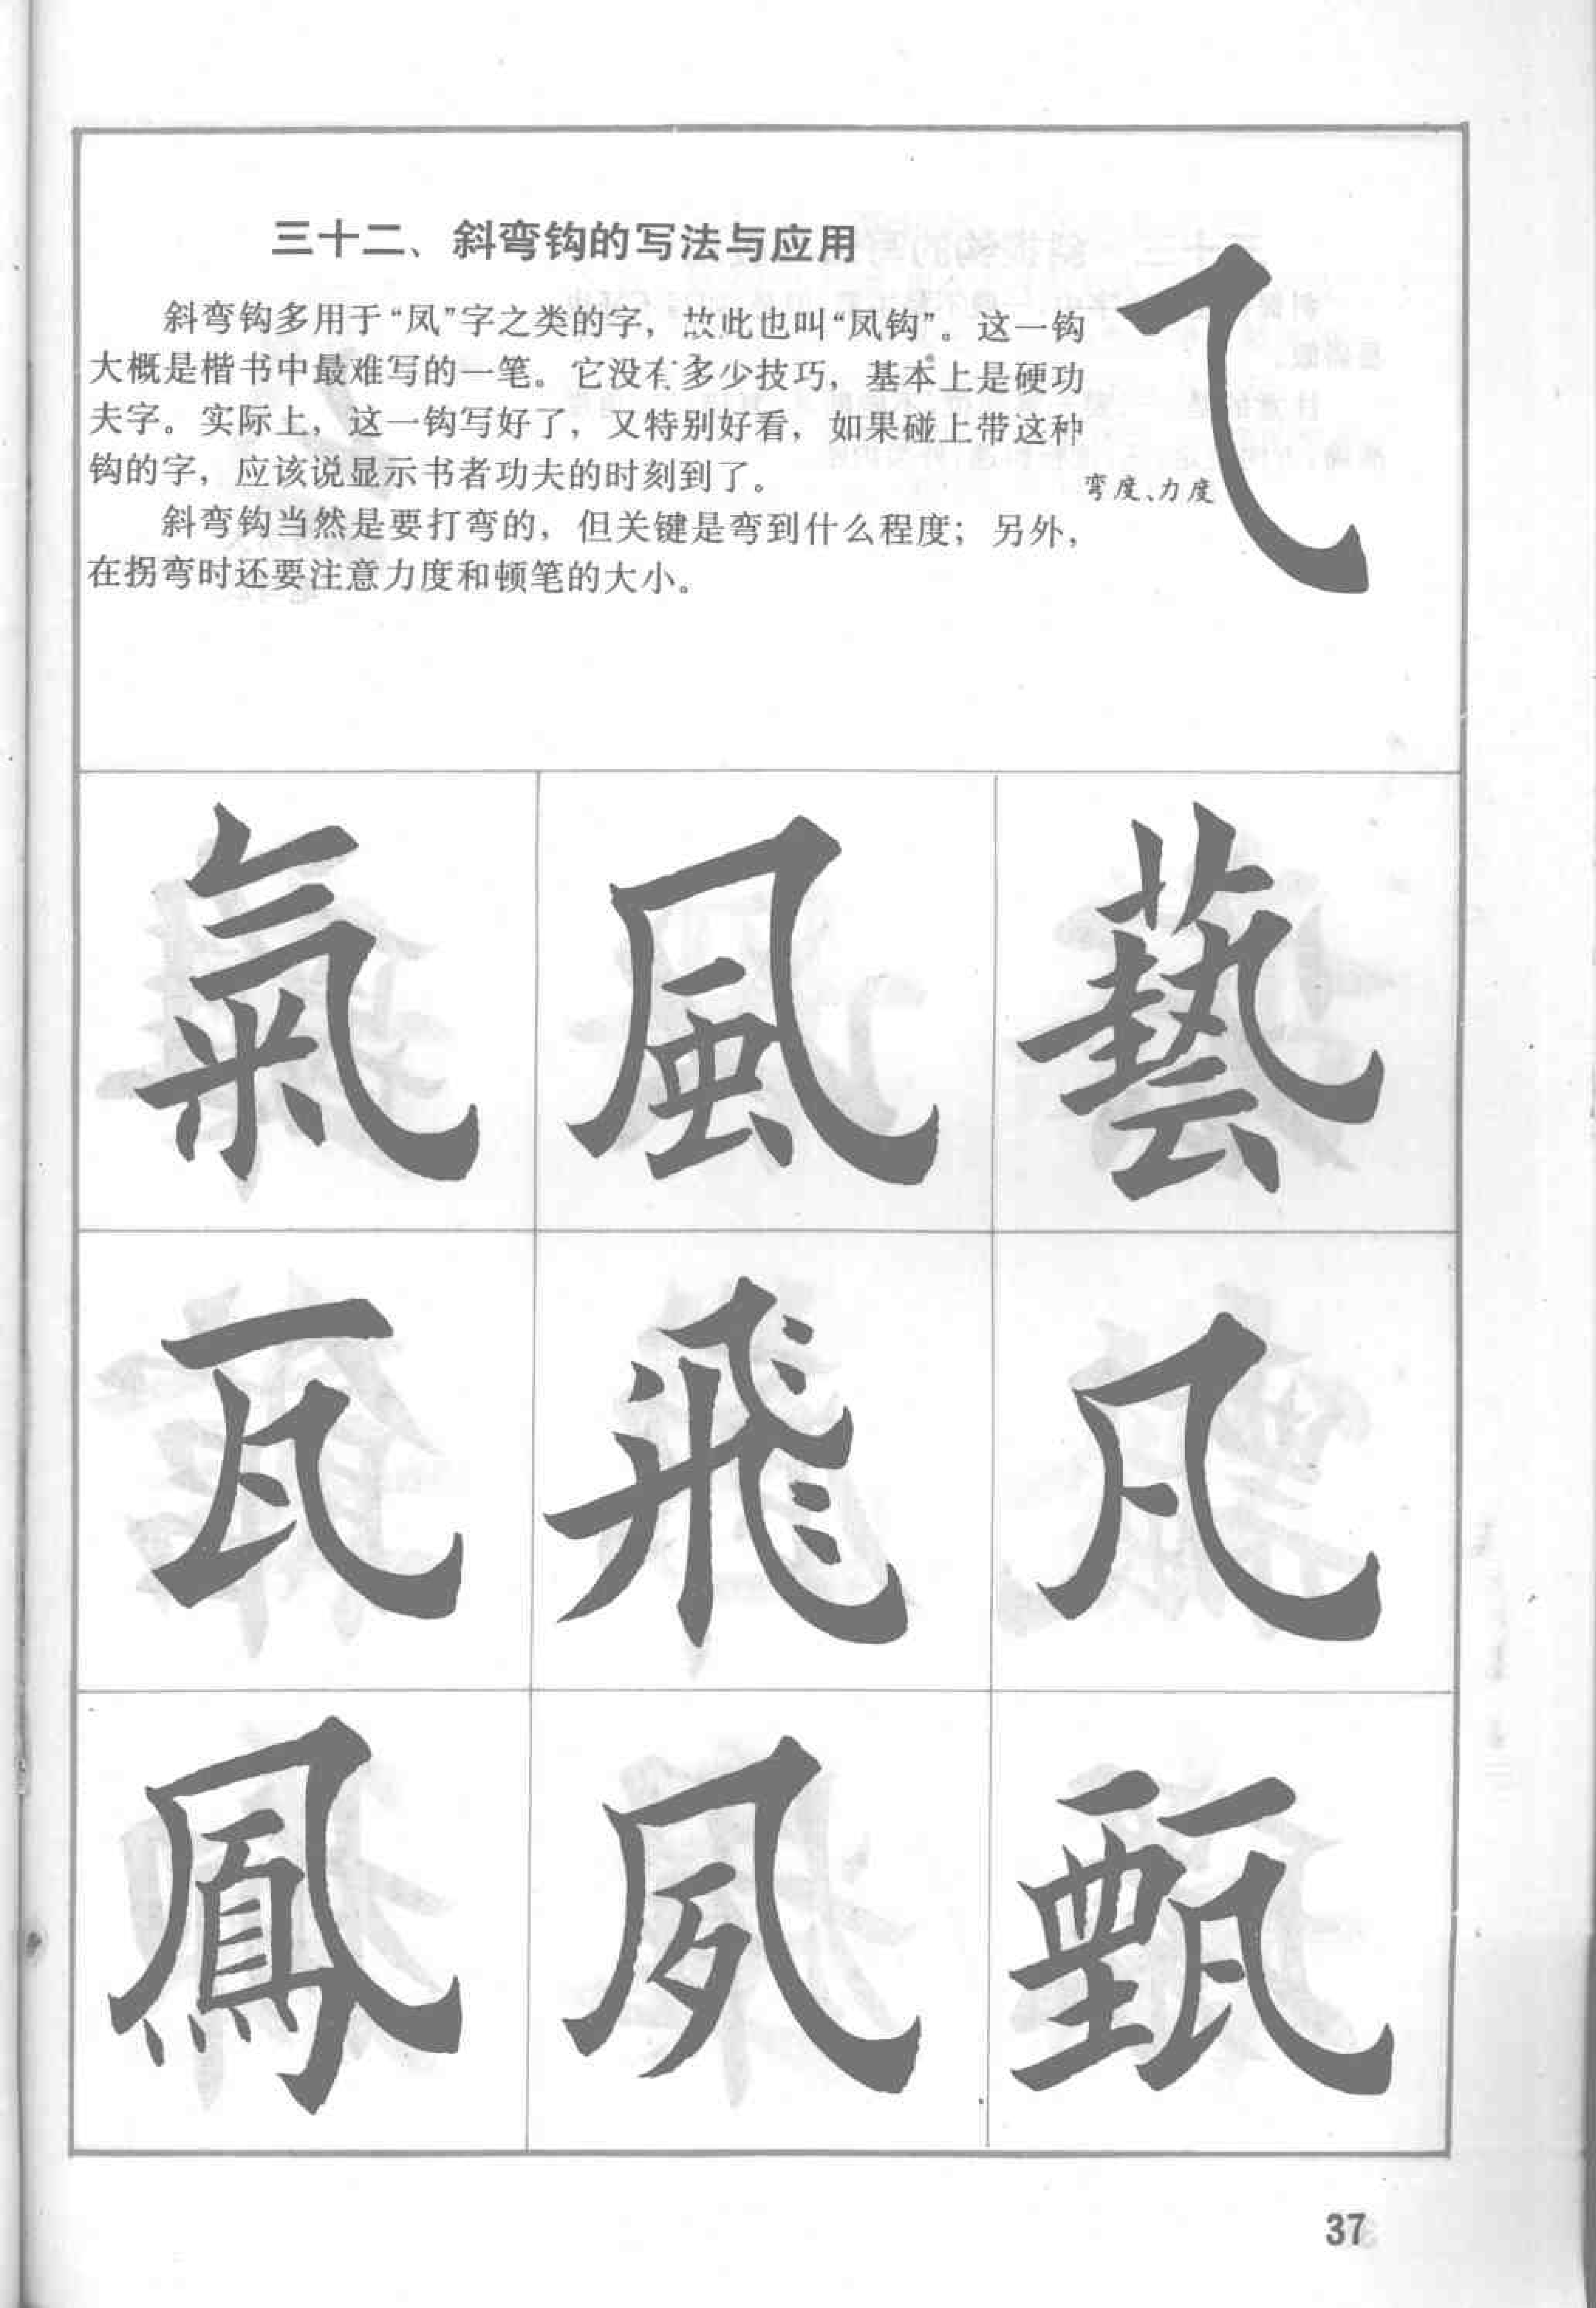 三十二、斜弯钩的写法与应用
斜弯钩多用于“凤”字之类的字，故此也叫“凤钩”。这一钩
大概是楷书中最难写的一笔。它没有多少技巧，基本上是硬功
夫字。实际上，这一钩写好了，又特别好看，如果碰上带这种
钩的字，应该说显示书者功夫的时刻到了。
斜弯钩当然是要打弯的，但关键是弯到什么程度；另外，
在拐弯时还要注意力度和顿笔的大小。
弯度、力度
氣 風 藝
瓦 飛 凡
鳳 夙 甄
37